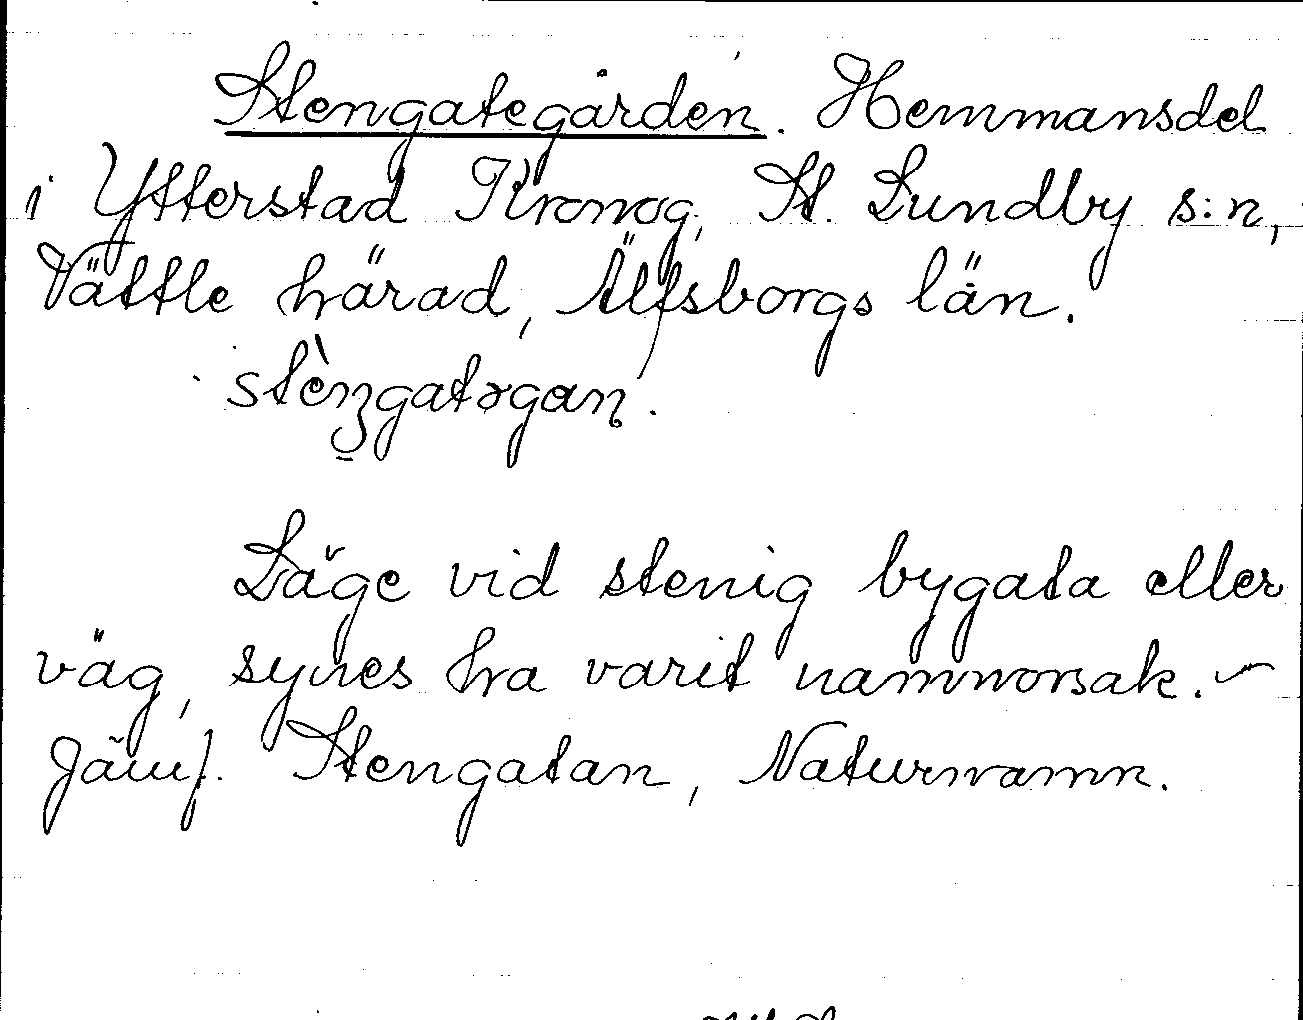 Stengategården. Hemmansdel
i Ytterstad Kronog, St. Lundby s:n,
Vättle härad, Älfsborgs län.
stèŋgatəgan.
Läge vid stenig bygata eller
väg, synes ha varit namnorsak. –
Jämf. Stengatan, Naturnamn.